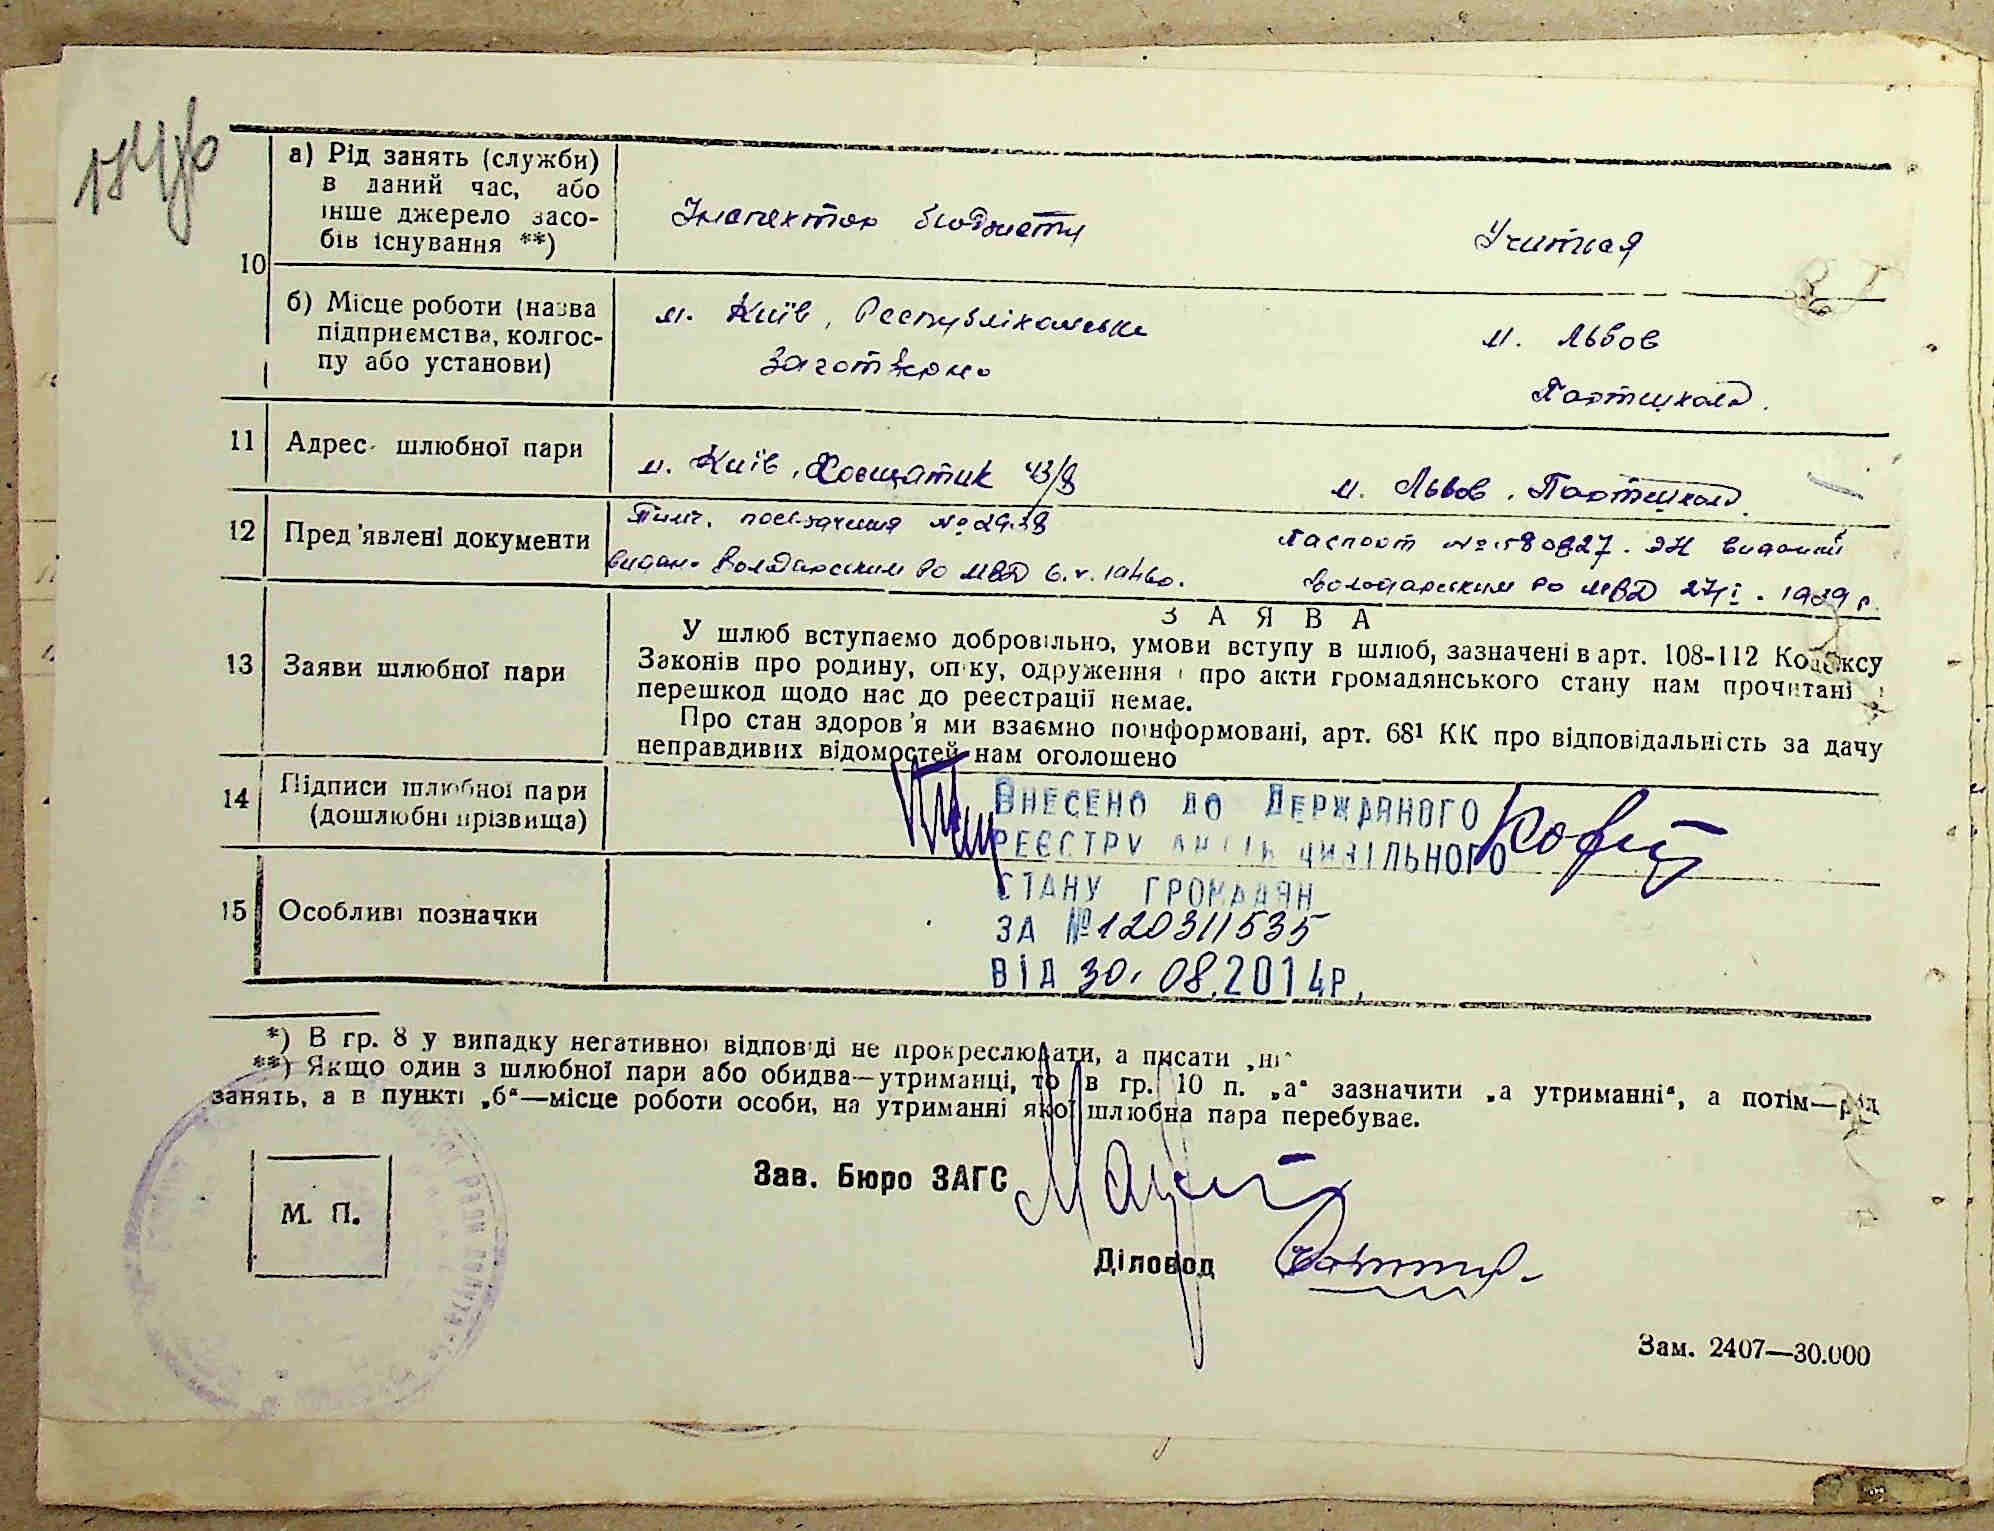 а) Рід занять (служби)
в даний час, або
інше джерело засо-
бів існування **)
Інспектор бюджету
Учитєля
10
б) Місце роботи (назва
підприємства, колгос-
пу або установи)
м. Київ, Республіканське
Заготзерно
м. Львов
Партшкола.
11 Адрес шлюбної пари
м. Київ, Хрещатик 43/8
м. Львов, Партшкола.
12 Пред'явлені документи
Тимч. посвідчення № 2938
видане Володарським Ро МВД 6.V.1946р.
Паспорт № 580827. ЭН виданий
Володарським Ро МВД 27/I. 1939 р.
З А Я В А
13 Заяви шлюбної пари
У шлюб вступаємо добровільно, умови вступу в шлюб, зазначені в арт. 108-112 Кодексу
Законів про родину, опіку, одруження і про акти громадянського стану нам прочитані і
перешкод щодо нас до реєстрації немає.
Про стан здоров'я ми взаємно поінформовані, арт. 68¹ КК про відповідальність за дачу
неправдивих відомостей нам оголошено
14 Підписи шлюбної пари
(дошлюбні прізвища)
ВНЕСЕНО ДО ДЕРЖАВНОГО
РЕЄСТРУ АКТІВ ЦИВІЛЬНОГО
СТАНУ ГРОМАДЯН
ЗА № 120311535
ВІД 30.08.2014р.
15 Особливі позначки
*) В гр. 8 у випадку негативної відповіді не прокреслювати, а писати „ні“
**) Якщо один з шлюбної пари або обидва—утриманці, то в гр. 10 п. „а“ зазначити „а утриманні“, а потім—рід
занять, а в пункті „б“—місце роботи особи, на утриманні якої шлюбна пара перебуває.
М. П.
Зав. Бюро ЗАГС
Діловод
Зам. 2407—30.000